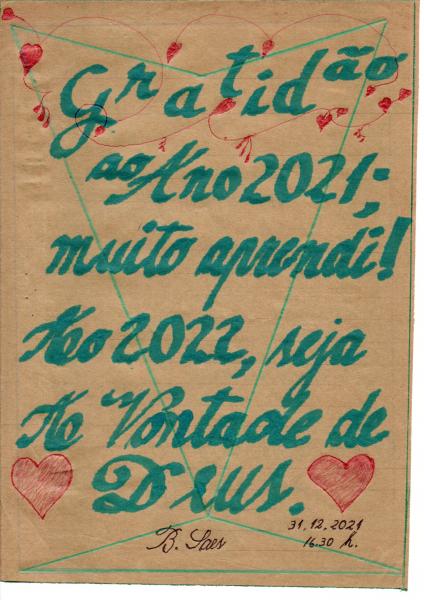 Gratidão
ao Ano 2021;
muito aprendi!
Ao 2022, seja
A Vontade de
Deus.
B. Saes
31.12.2021
16.30 h.